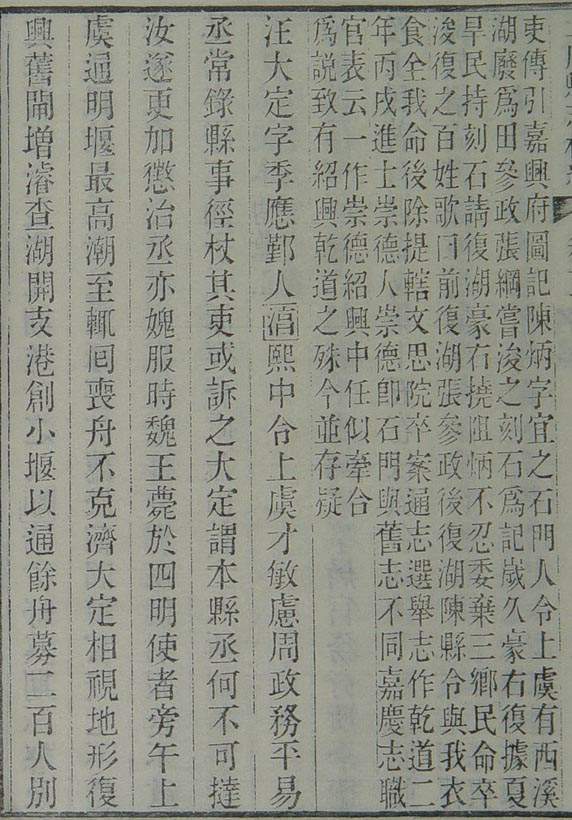 吏傳引嘉興府圖記陳炳字宜之石門人令上虞有西溪
湖廢爲田參政張綱嘗浚之刻石爲記歲久豪右復據夏
旱民持刻石請復湖豪右撓阻炳不忍委棄三鄉民命卒
浚復之百姓歌曰前復湖張參政後復湖陳縣令與我衣
食全我命後除提轄文思院卒案通志選舉志作乾道二
年丙戌進士崇德人崇德卽石門與舊志不同嘉慶志職
官表云一作崇德紹興中任似牽合
爲說致有紹興乾道之殊今並存疑
汪大定字季應鄞人淯熙中令上虞才敏慮周政務平易
丞常錄縣事徑杖其吏或訴之大定謂本縣丞何不可撻
汝遂更加懲治丞亦媿服時魏王薨於四明使者旁午上
虞通明堰最高潮至輒囘喪舟不克濟大定相視地形復
興舊閘增濬查湖開支港創小堰以通餘舟募二百人別